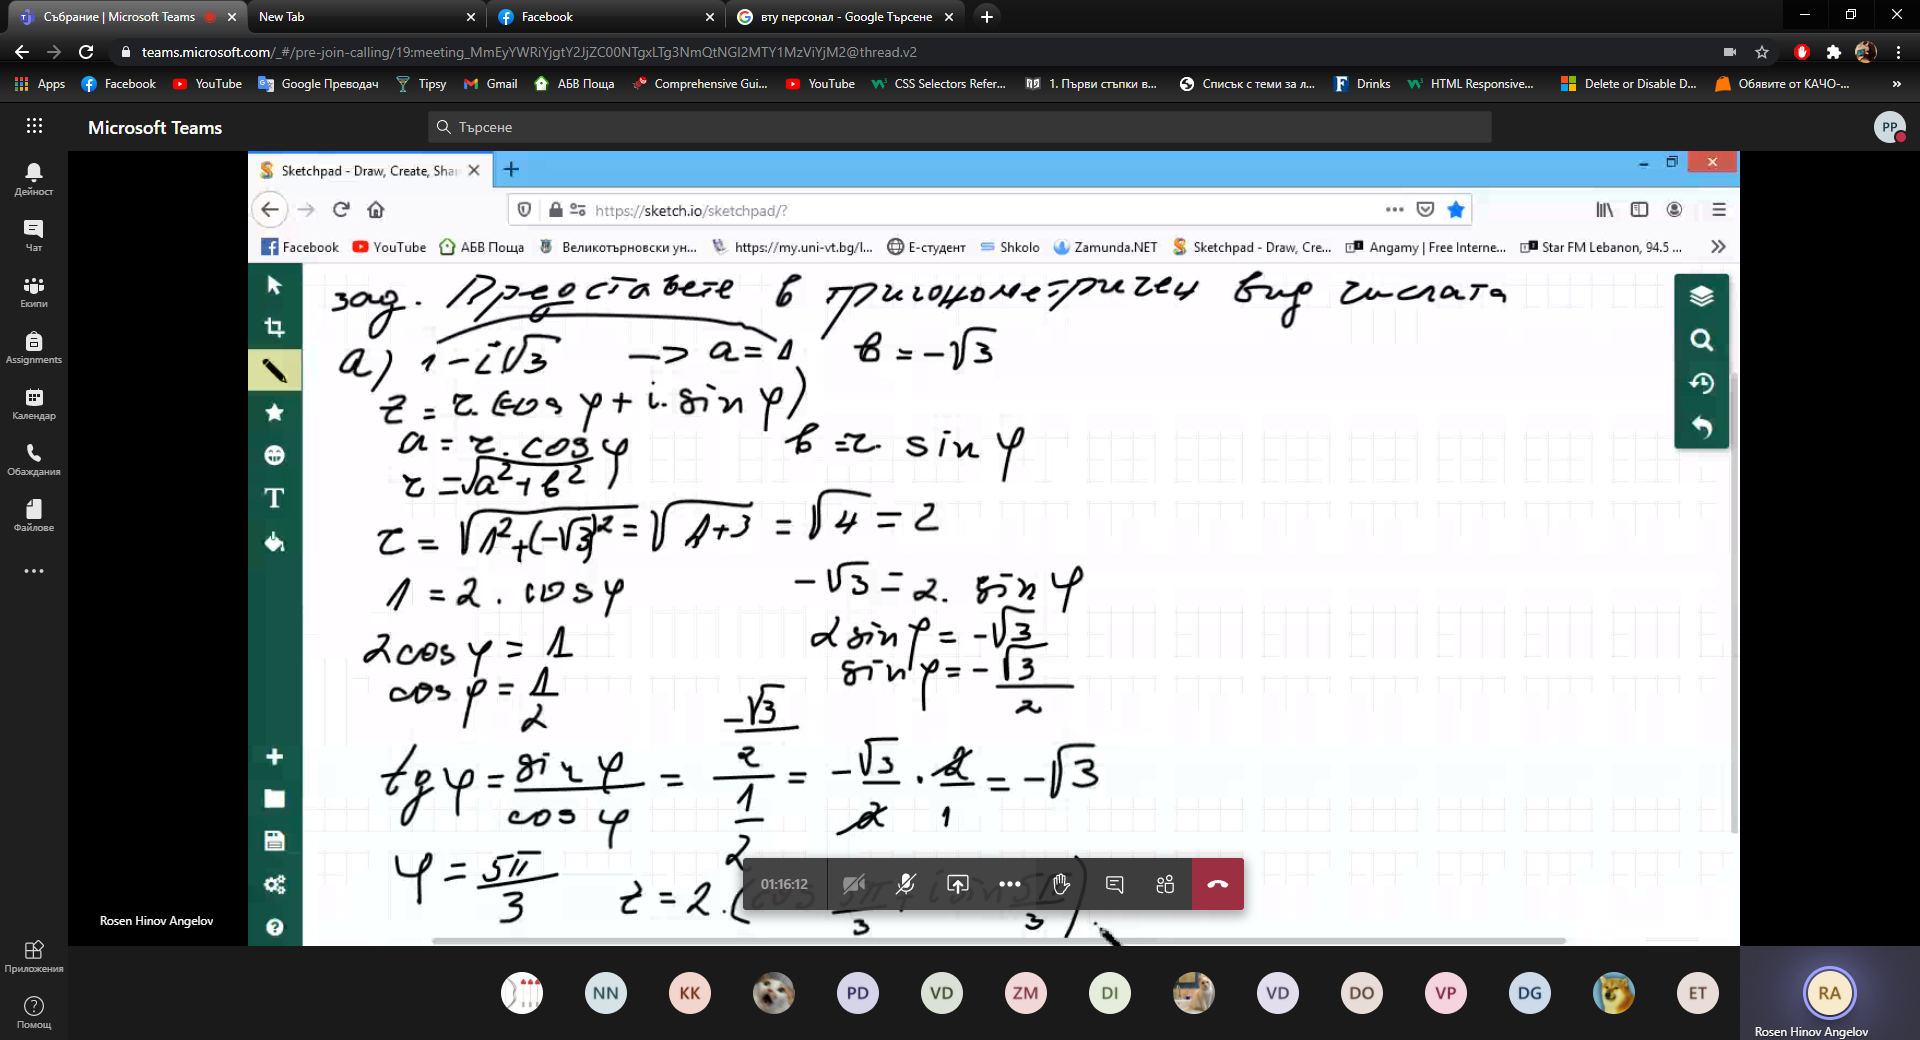 Събрание | Microsoft Teams
New Tab
Facebook
вту персонал - Google Търсене
teams.microsoft.com/_#/pre-join-calling/19:meeting_MmEyYWRiYjgtY2JjZC00NTgxLTg3NmQtNGI2MTY1MzViYjM2@thread.v2
Apps Facebook YouTube Google Преводач Tipsy Gmail АБВ Поща Comprehensive Gui... YouTube CSS Selectors Refer... 1. Първи стъпки в... Списък с теми за л... Drinks HTML Responsive... Delete or Disable D... Обявите от КАЧО-... »
Microsoft Teams
Търсене
PP
Дейност
Чат
Екипи
Assignments
Календар
Обаждания
Файлове
Приложения
Помощ
Sketchpad - Draw, Create, Sha
https://sketch.io/sketchpad/?
Facebook YouTube АБВ Поща Великотърновски ун... https://my.uni-vt.bg/l... Е-студент Shkolo Zamunda.NET Sketchpad - Draw, Cre... Angamy | Free Interne... Star FM Lebanon, 94.5 ...
зад. Представете в тригонометричен вид числата
а) 1 - i√3 -> a = 1 b = -√3
z = r.(cos φ + i. sin φ)
a = r. cos φ b = r. sin φ
r = √a² + b²
r = √1² + (-√3)² = √1+3 = √4 = 2
1 = 2 . cos φ -√3 = 2. sin φ
2 cos φ = 1 2 sin φ = -√3
cos φ = 1/2 sin φ = - √3/2
tg φ = sin φ / cos φ = (-√3/2)/(1/2) = -√3/2 . 2/1 = -√3
φ = 5π/3 z = 2.(cos 5π/3 + i sin 5π/3)
01:16:12
Rosen Hinov Angelov
NN KK PD VD ZM DI VD DO VP DG ET RA
Rosen Hinov Angelov